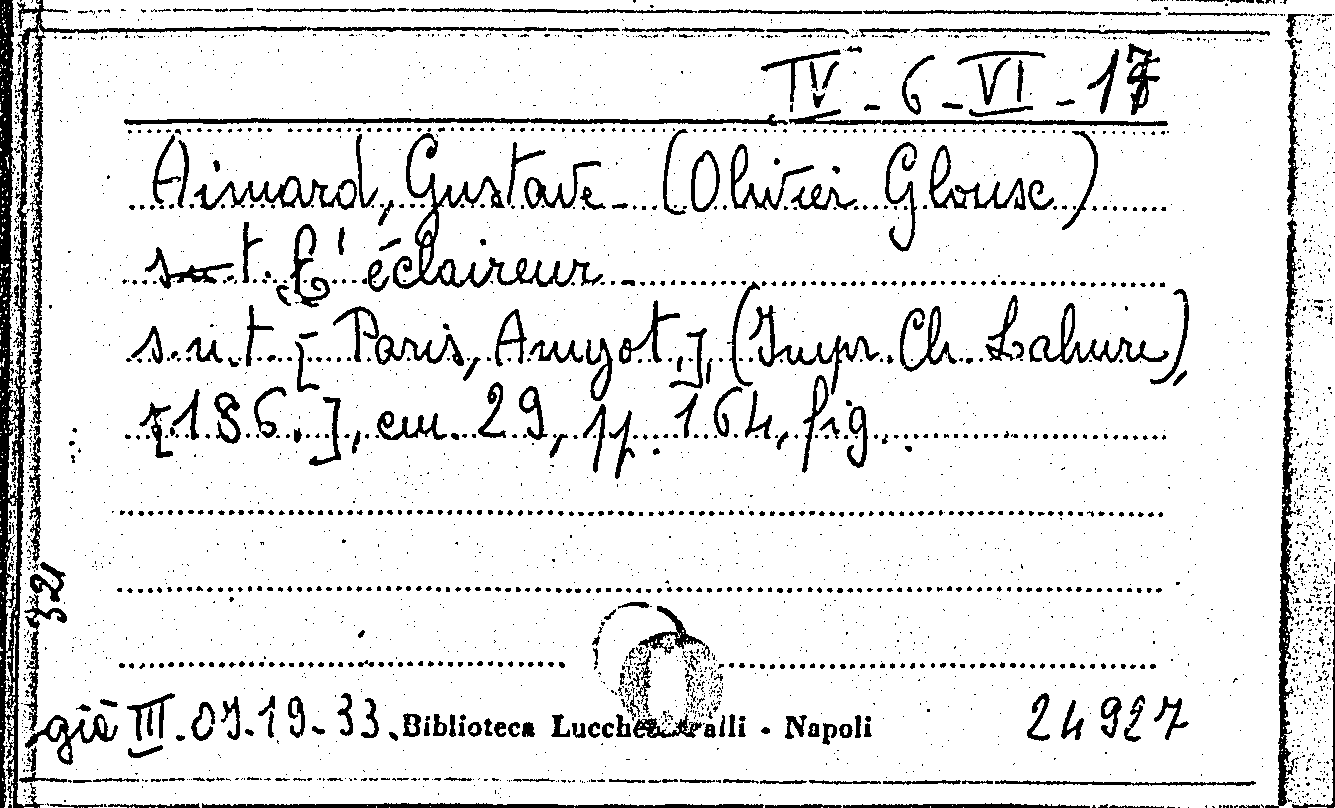 IV - 6 - VI - 17
Aimard, Gustave - (Olivier Glousc)
s.n.t. L'éclaireur -
s.n.t. [Paris, Amyot,], (Impr. Ch. Lahure),
[186.], cm. 29, pp. 164, fig.
321
già III.07.19-33.
Biblioteca Lucchesi Palli - Napoli
24927